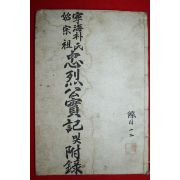 寧海朴氏
始宗祖
忠烈公實記
附錄